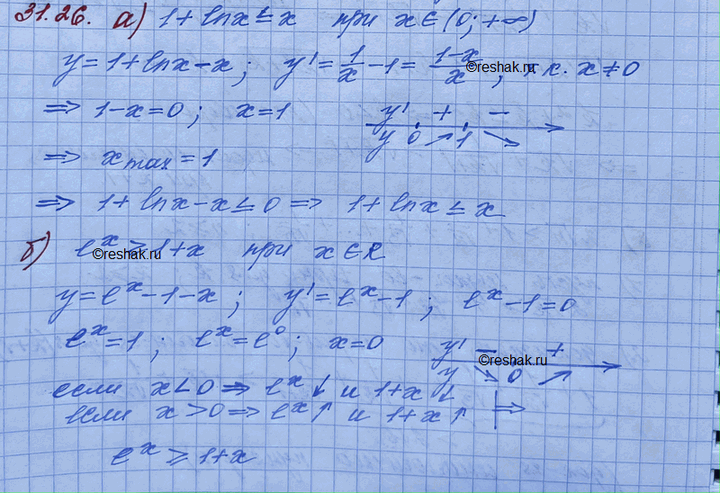 31.26. а) 1 + lnx ≤ x при x ∈ (0; +∞)
y = 1 + lnx − x; y' = 1/x − 1 = (1−x)/x, т.к. x ≠ 0
©reshak.ru
⇒ 1−x = 0; x = 1
y' + −
y 0 ↗ 1 ↘
⇒ x max = 1
⇒ 1 + lnx − x ≤ 0 ⇒ 1 + lnx ≤ x
б) e^x ≥ 1 + x при x ∈ R
©reshak.ru
y = e^x − 1 − x; y' = e^x − 1; e^x − 1 = 0
e^x = 1; e^x = e^0; x = 0
y' − +
©reshak.ru
y ↘ 0 ↗
если x < 0 ⇒ e^x ↓ и 1+x ↓
если x > 0 ⇒ e^x ↑ и 1+x ↑ | ⇒
e^x ≥ 1+x